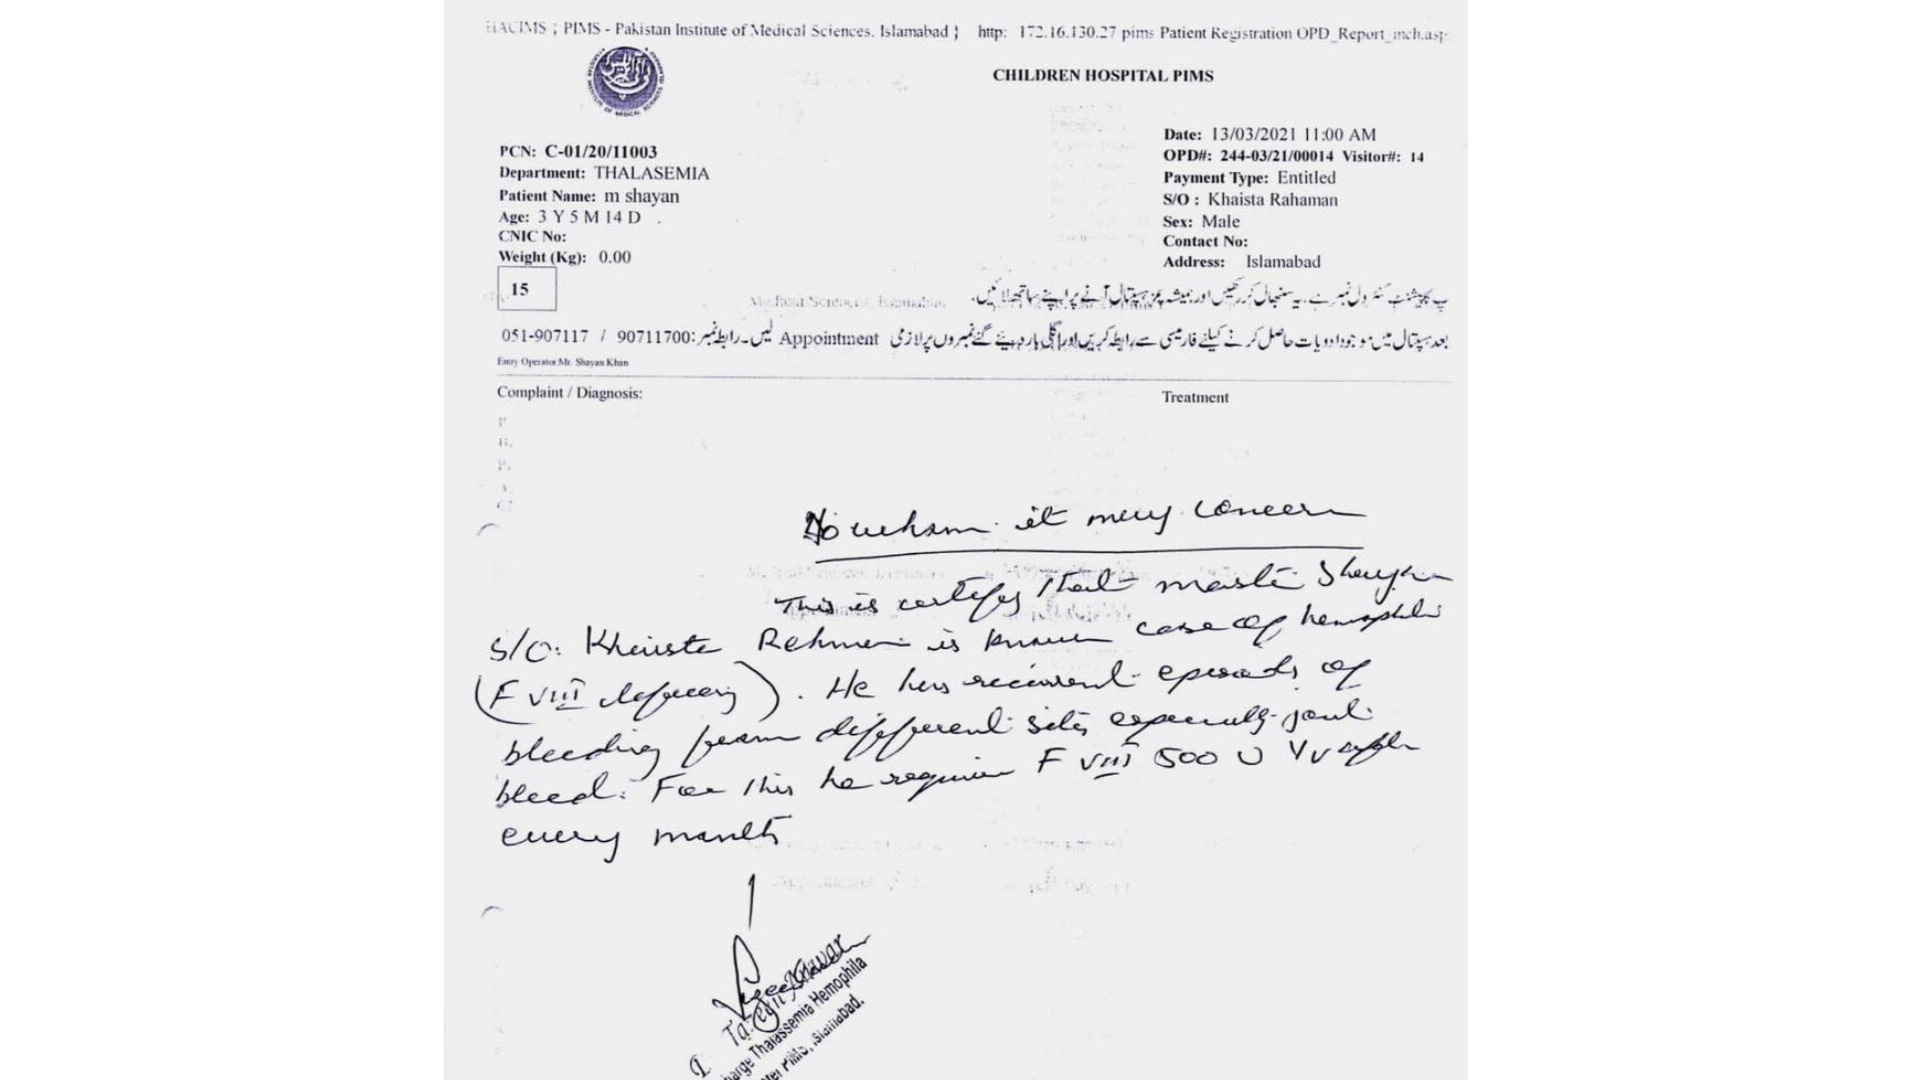 HACIMS ; PIMS - Pakistan Institute of Medical Sciences. Islamabad } http: 172.16.130.27 pims Patient Registration OPD_Report_mch.asp
CHILDREN HOSPITAL PIMS
Date: 13/03/2021 11:00 AM
PCN: C-01/20/11003
OPD#: 244-03/21/00014 Visitor#: 14
Department: THALASEMIA
Payment Type: Entitled
Patient Name: m shayan
S/O : Khaista Rahaman
Age: 3 Y 5 M 14 D
Sex: Male
CNIC No:
Contact No:
Weight (Kg): 0.00
Address: Islamabad
15
یہ پیشنٹ کنٹرول نمبر ہے، یہ سنبھال کر رکھیں اور ہمیشہ پمز ہسپتال آنے پر اپنے ساتھ لائیں.
بعد ہسپتال میں موجود ادویات حاصل کرنے کیلئے فارمیسی سے رابطہ کریں اور اگلی بار دیئے گئے نمبروں پر لازمی Appointment لیں۔ رابطہ نمبر: 90711700 / 051-907117
Entry Operator Mr. Shayan Khan
Complaint / Diagnosis:
Treatment
To whom it may concern
This is certify that master Shayan
S/O: Khaista Rehman is known case of hemophilia
(F VIII deficiency). He has recurrent episods of
bleeding from different sites especially joint
bleed. For this he require F VIII 500 U
every month
Tahir
charge Thalassemia Hemophila
PIMS, Islamabad.